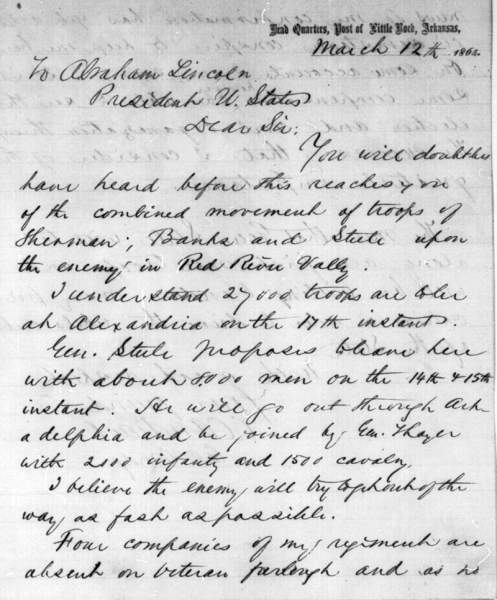 Head Quarters, Post of Little Rock, Arkansas,
March 12th 1864.
To Abraham Lincoln
President U. States
Dear Sir:
You will doubtless
have heard before this reaches you
of the combined movement of troops, of
Sherman, Banks and Steele upon
the enemy in Red River Vally
I understand 27000 troops are to be
at Alexandria on the 17th instant.
Gen. Steele proposes to leave here
with about 8000 men on the 14th & 15th
instant. He will go out through Ark
adelphia and be joined by Gen. Thayer
with 2000 infanty and 1500 cavalry,
I believe the enemy will try to get out of the
way as fast as possible.
Four companies of my regiment are
absent on veteran furlough and as no